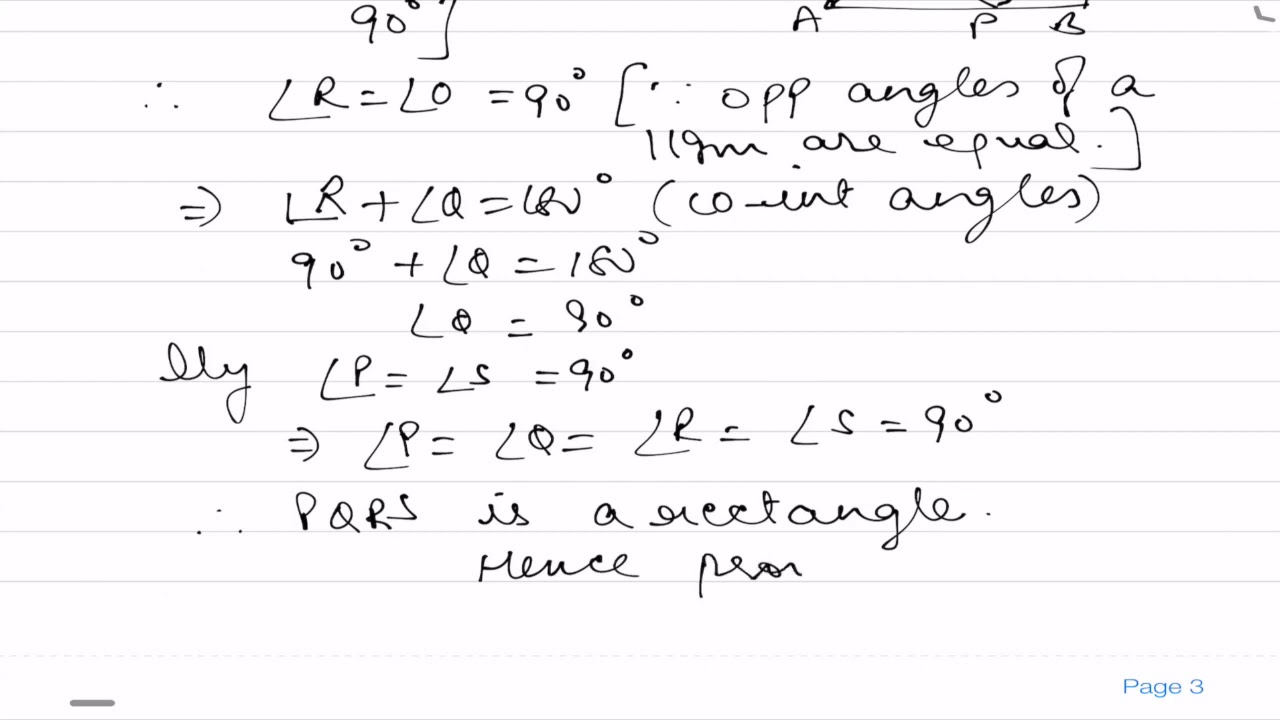 90°]
A P B
∴ ∠R = ∠O = 90° [∵ opp angles of a
||gm are equal.]
⇒ ∠R + ∠Q = 180° (co-int angles)
90° + ∠Q = 180°
∠Q = 90°
llly ∠P = ∠S = 90°
⇒ ∠P = ∠Q = ∠R = ∠S = 90°
∴ PQRS is a rectangle.
Hence pro
Page 3